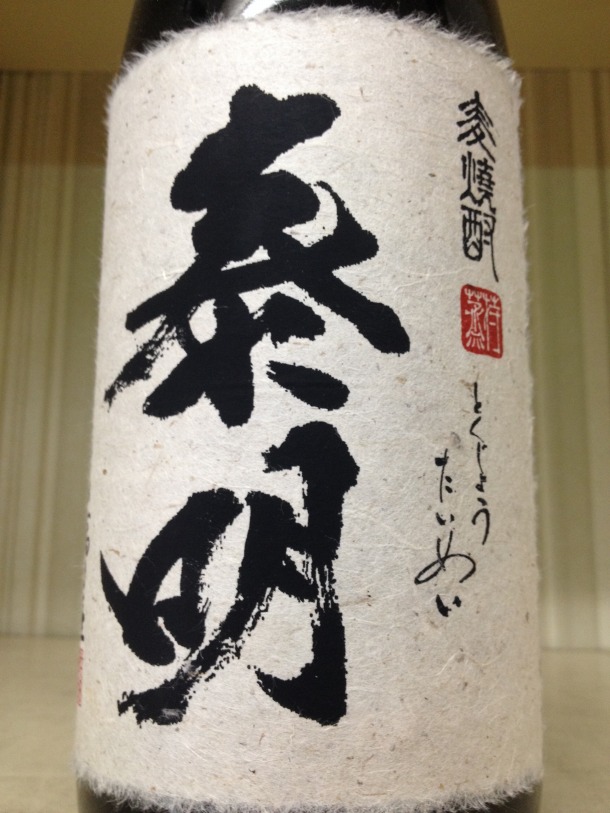 麦焼酎
特蒸
とくじょう
たいめい
泰明